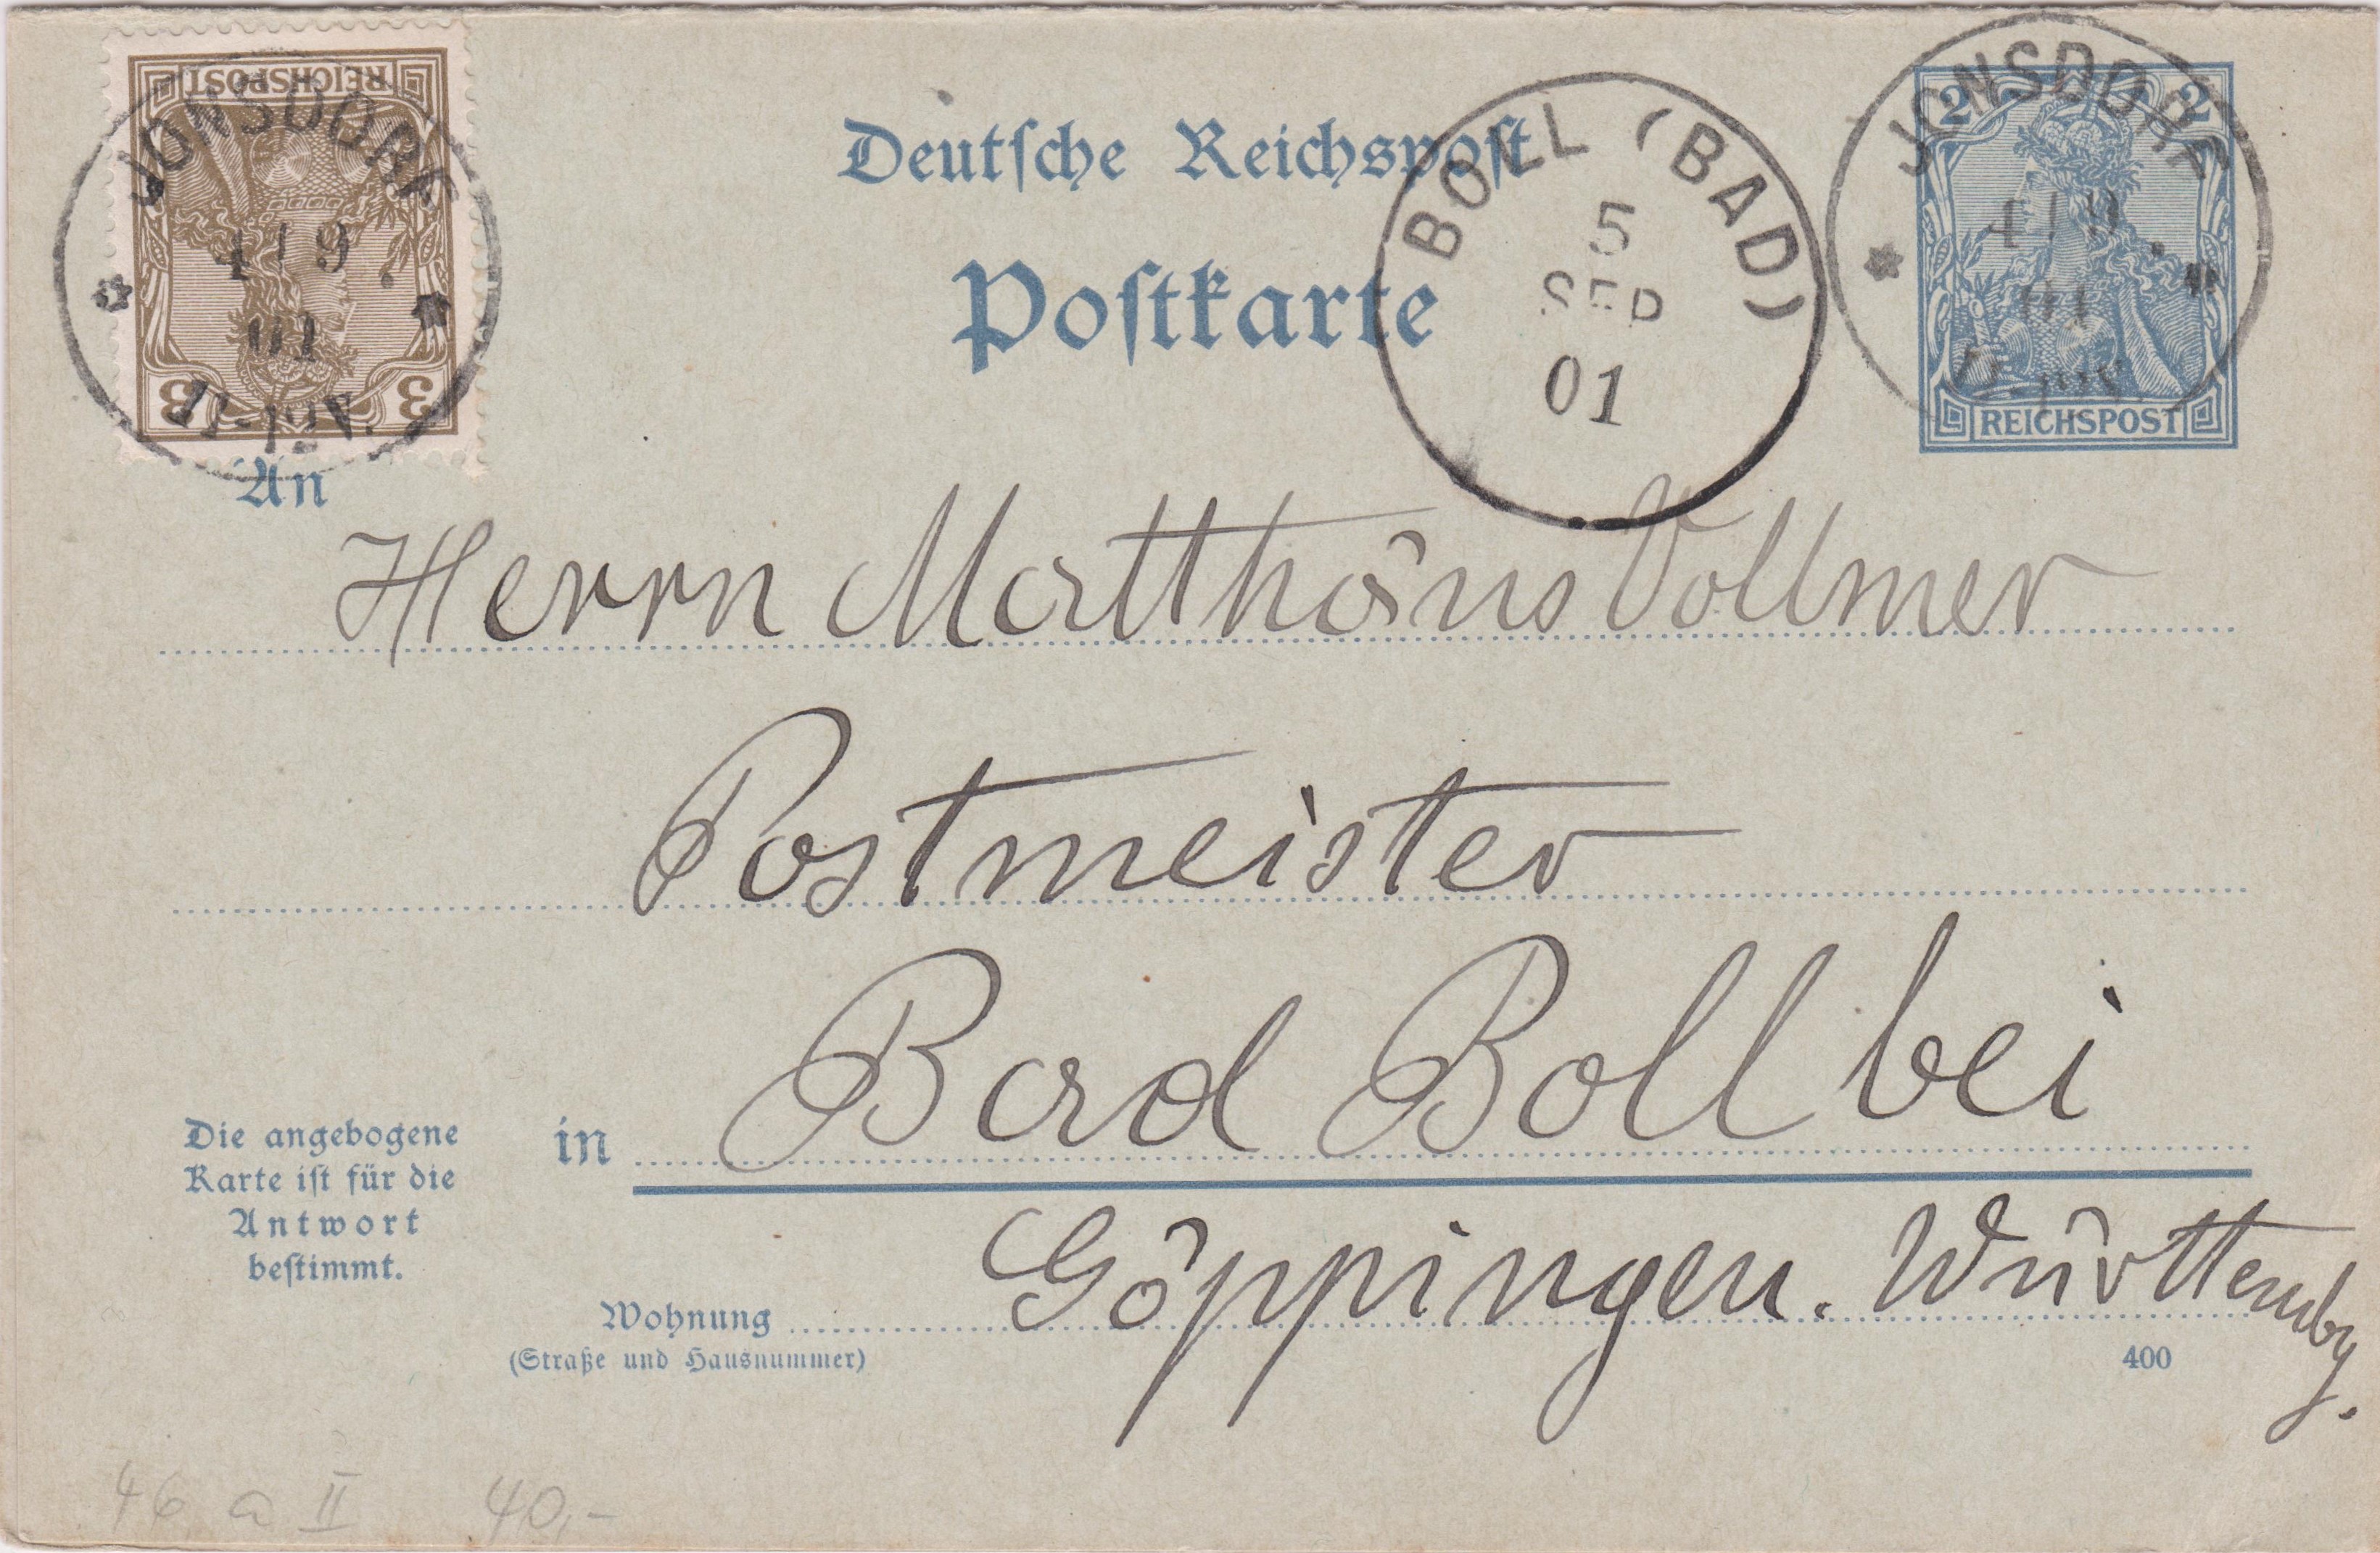 REICHSPOST
3 3
JONSDORF
4/9.
01
Deutsche Reichspost
Postkarte
BOLL (BAD)
5
SEP
01
2 2
JONSDORF
4/9.
01
REICHSPOST
An
Herrn Matthäus Vollmer
Postmeister
in Bad Boll bei
Göppingen. Württembg.
Die angebogene
Karte ist für die
Antwort
bestimmt.
Wohnung
(Straße und Hausnummer)
400
46 a II 40,-